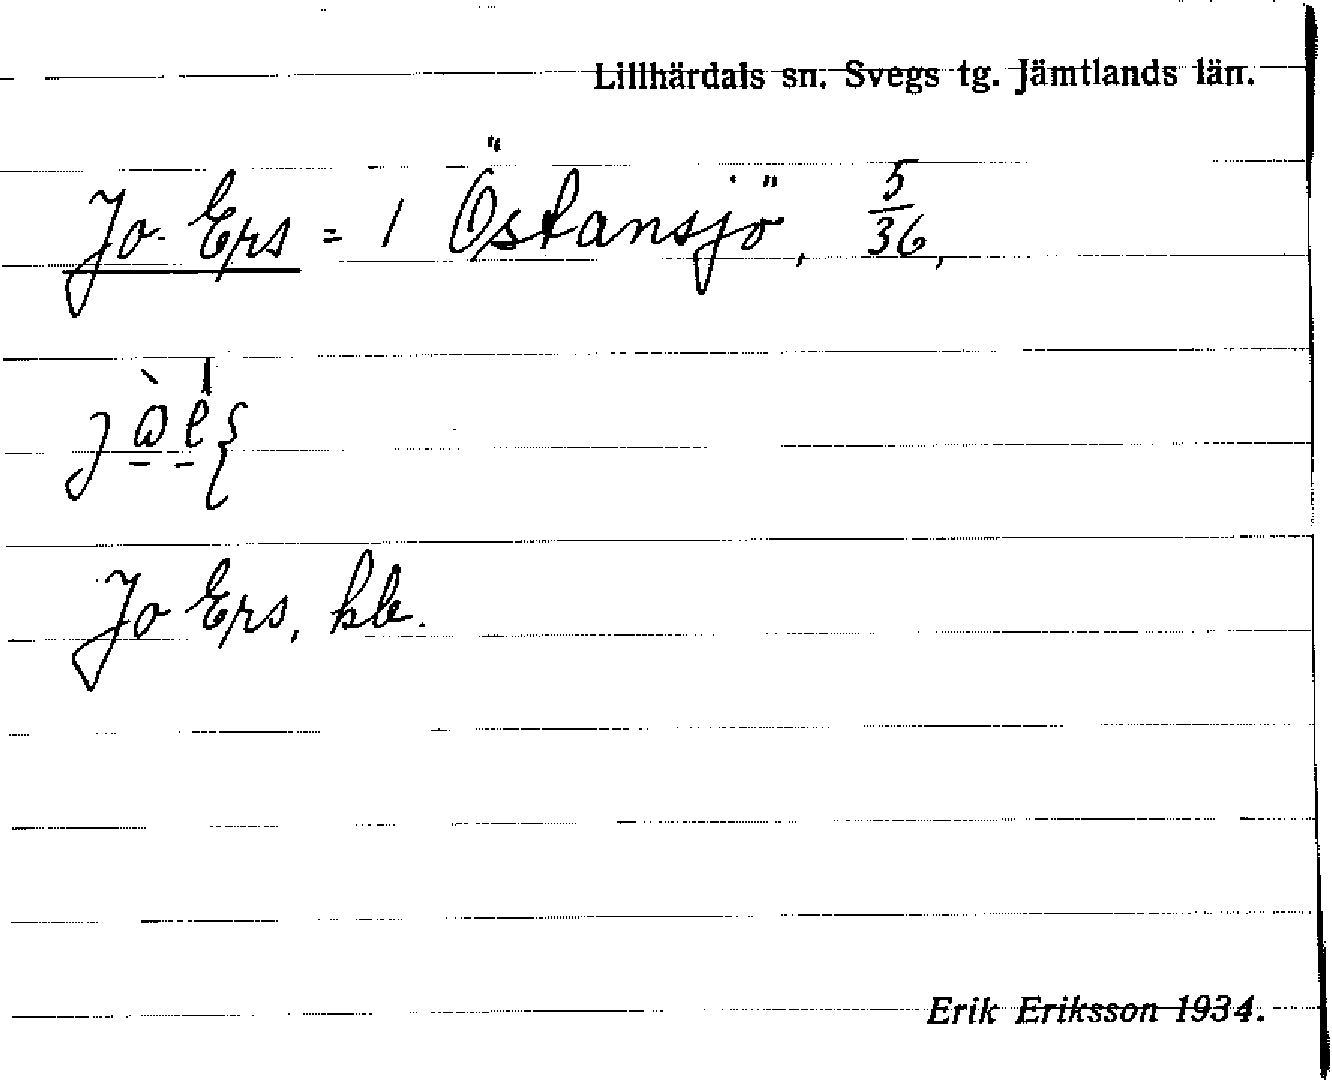 Lillhärdals sn. Svegs tg. Jämtlands län.
Jo Ers = 1 Östansjö, 5/36,
Jo Ers, kb.
Erik Eriksson 1934.